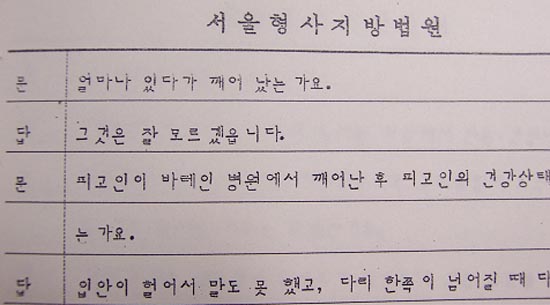 서울형사지방법원
문 얼마나 있다가 깨어 났는 가요.
답 그것은 잘 모르겠읍니다.
문 피고인이 바레인 병원에서 깨어난 후 피고인의 건강상태
는 가요.
답 입안이 헐어서 말도 못 했고, 다리 한쪽이 넘어질 때 다